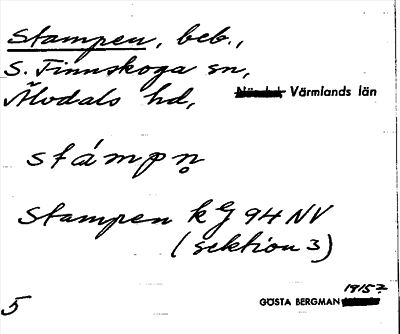 Stampen, beb.,
S. Finnskoga sn,
Älvdals hd, Värmlands län
stámpn̥
Stampen kg 94 NV
(sektion 3)
1915?
GÖSTA BERGMAN
5